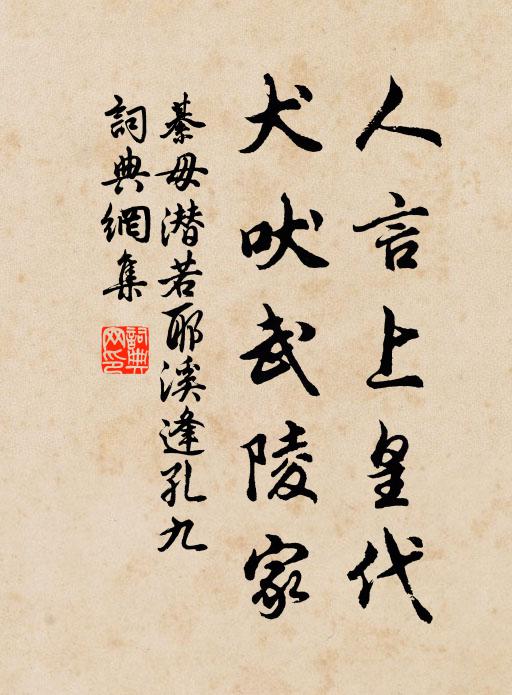 人言上皇代
犬吠武陵家
綦毋潛若耶溪逢孔九
詞典網集
詞典
网印